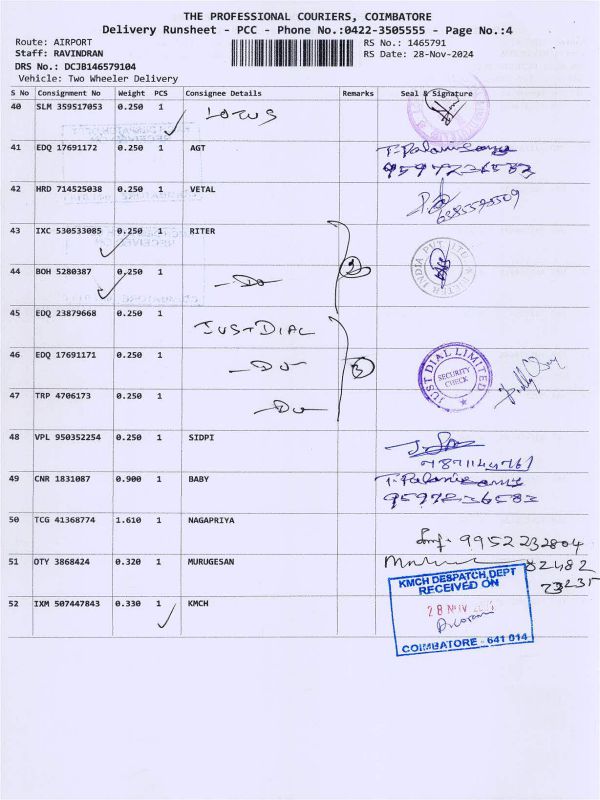 THE PROFESSIONAL COURIERS, COIMBATORE
Delivery Runsheet - PCC - Phone No.:0422-3505555 - Page No.:4
Route: AIRPORT
RS No.: 1465791
Staff: RAVINDRAN
RS Date: 28-Nov-2024
DRS No.: DCJB146579104
Vehicle: Two Wheeler Delivery
S No Consignment No Weight PCS Consignee Details Remarks Seal & Signature
40 SLM 359517053 0.250 1 LOTUS
41 EDQ 17691172 0.250 1 AGT
9597236582
42 HRD 714525038 0.250 1 VETAL
43 IXC 530533085 0.250 1 RITER
44 BOH 5280387 0.250 1 -Do 2
45 EDQ 23879668 0.250 1 JUSTDIAL
46 EDQ 17691171 0.250 1 -Do- 3
JUST DIAL LIMITED
SECURITY
CHECK
47 TRP 4706173 0.250 1 -Do
48 VPL 950352254 0.250 1 SIDPI
49 CNR 1831087 0.900 1 BABY
9597236582
50 TCG 41368774 1.610 1 NAGAPRIYA
9952232804
51 OTY 3868424 0.320 1 MURUGESAN
82482
23235
52 IXM 507447843 0.330 1 KMCH
KMCH DESPATCH DEPT
RECEIVED ON
28 NOV
COIMBATORE - 641 014